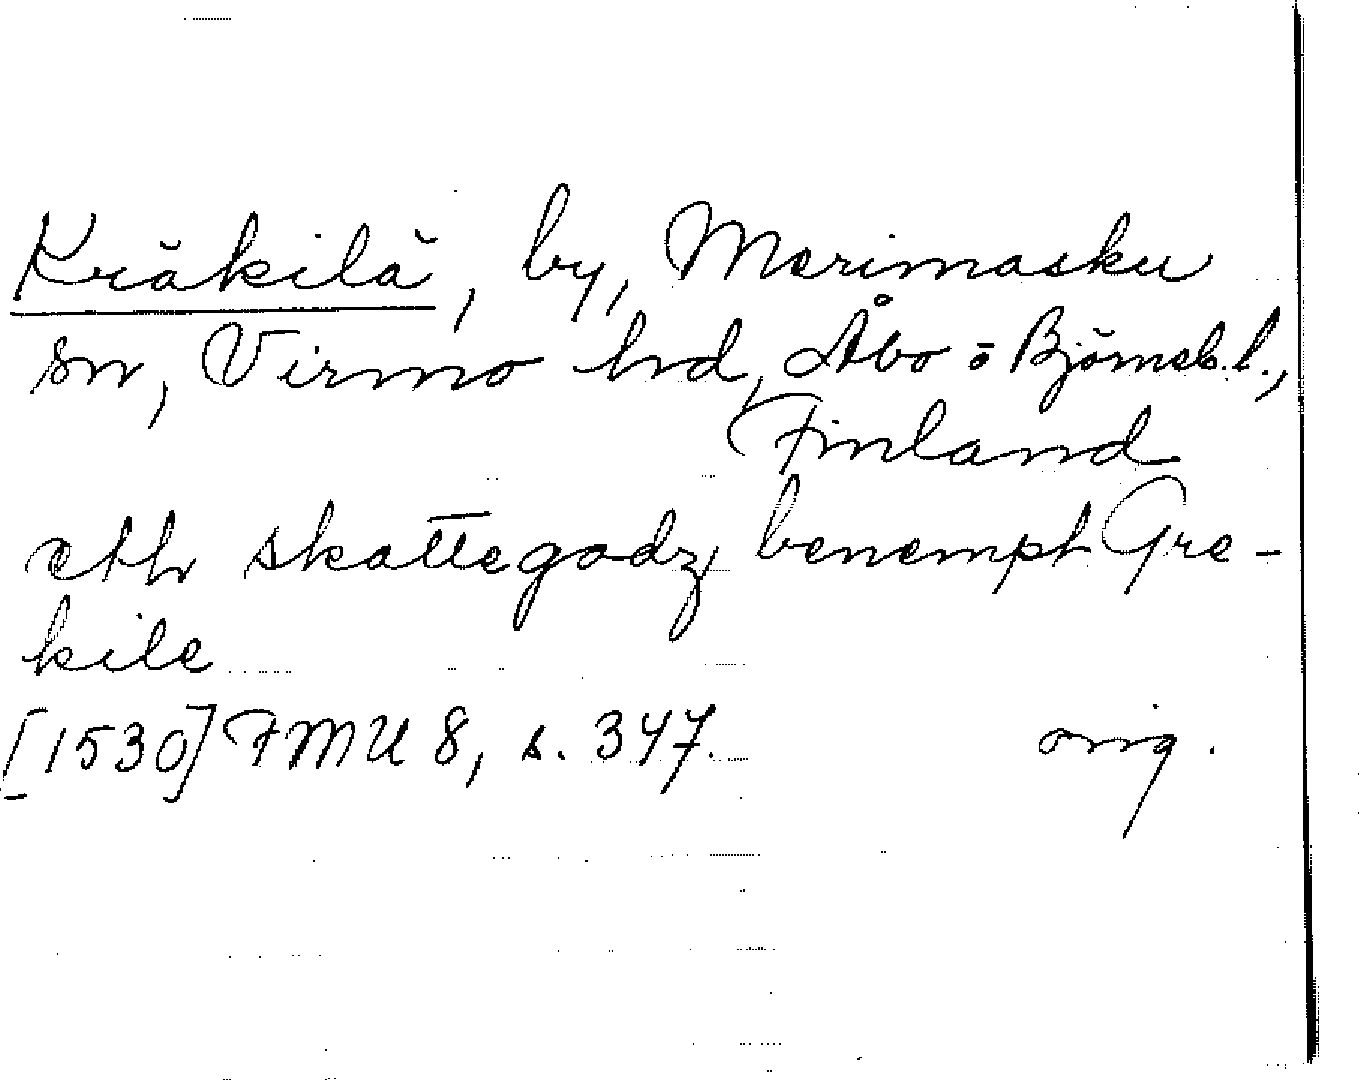 Kräkilä, by, Merimasku
sn, Virmo hd, Åbo o Björneb. l.,
Finland
eth skattegodz benempt Gre-
kile
[1530] FMU 8, s. 347. orig.